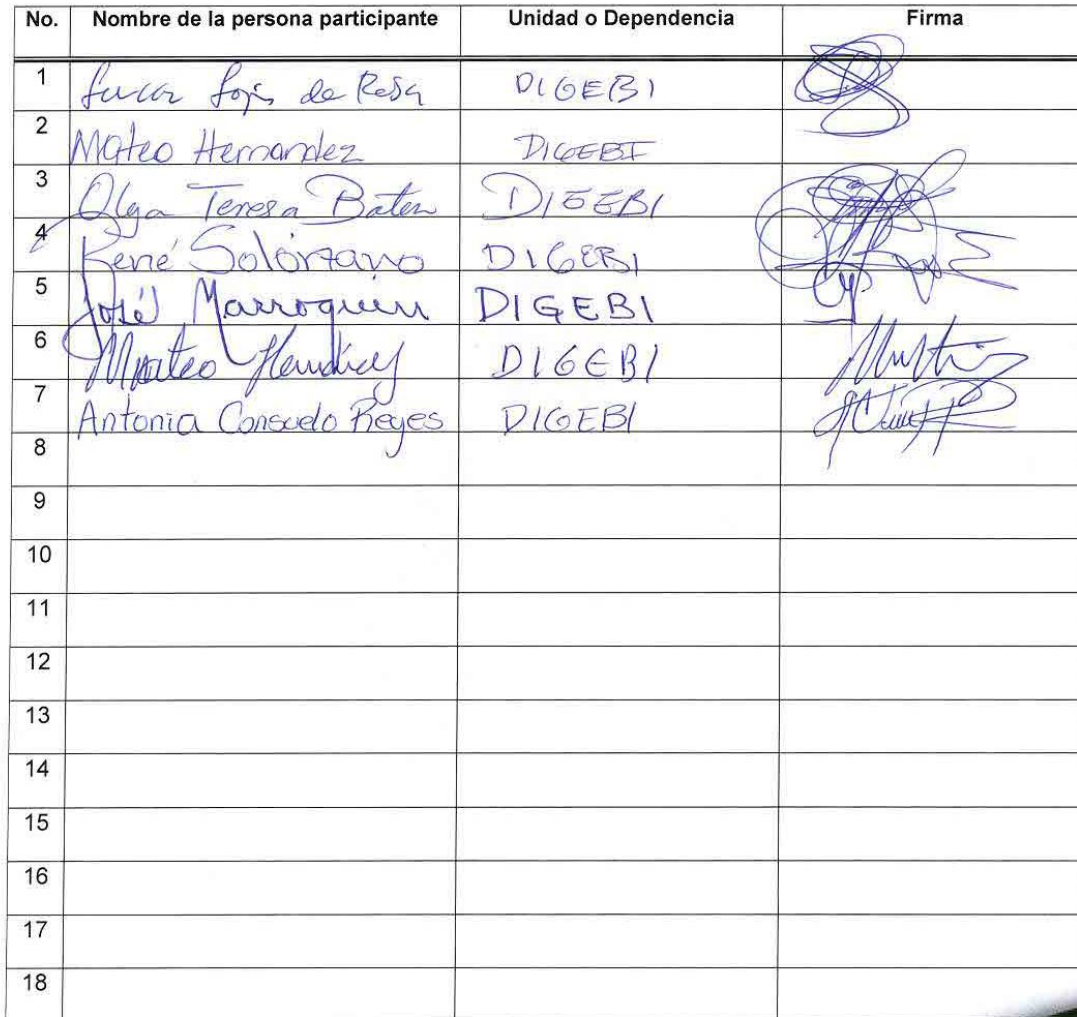 No. Nombre de la persona participante Unidad o Dependencia Firma
1 de DIGEBI
2 Mateo Hernandez DIGEBI
3 Olga Teresa Baten DIGEBI
4 René Solórzano DIGEBI
5 José Marroquin DIGEBI
6 Mateo DIGEBI
7 Antonia Consuelo Reyes DIGEBI
8
9
10
11
12
13
14
15
16
17
18